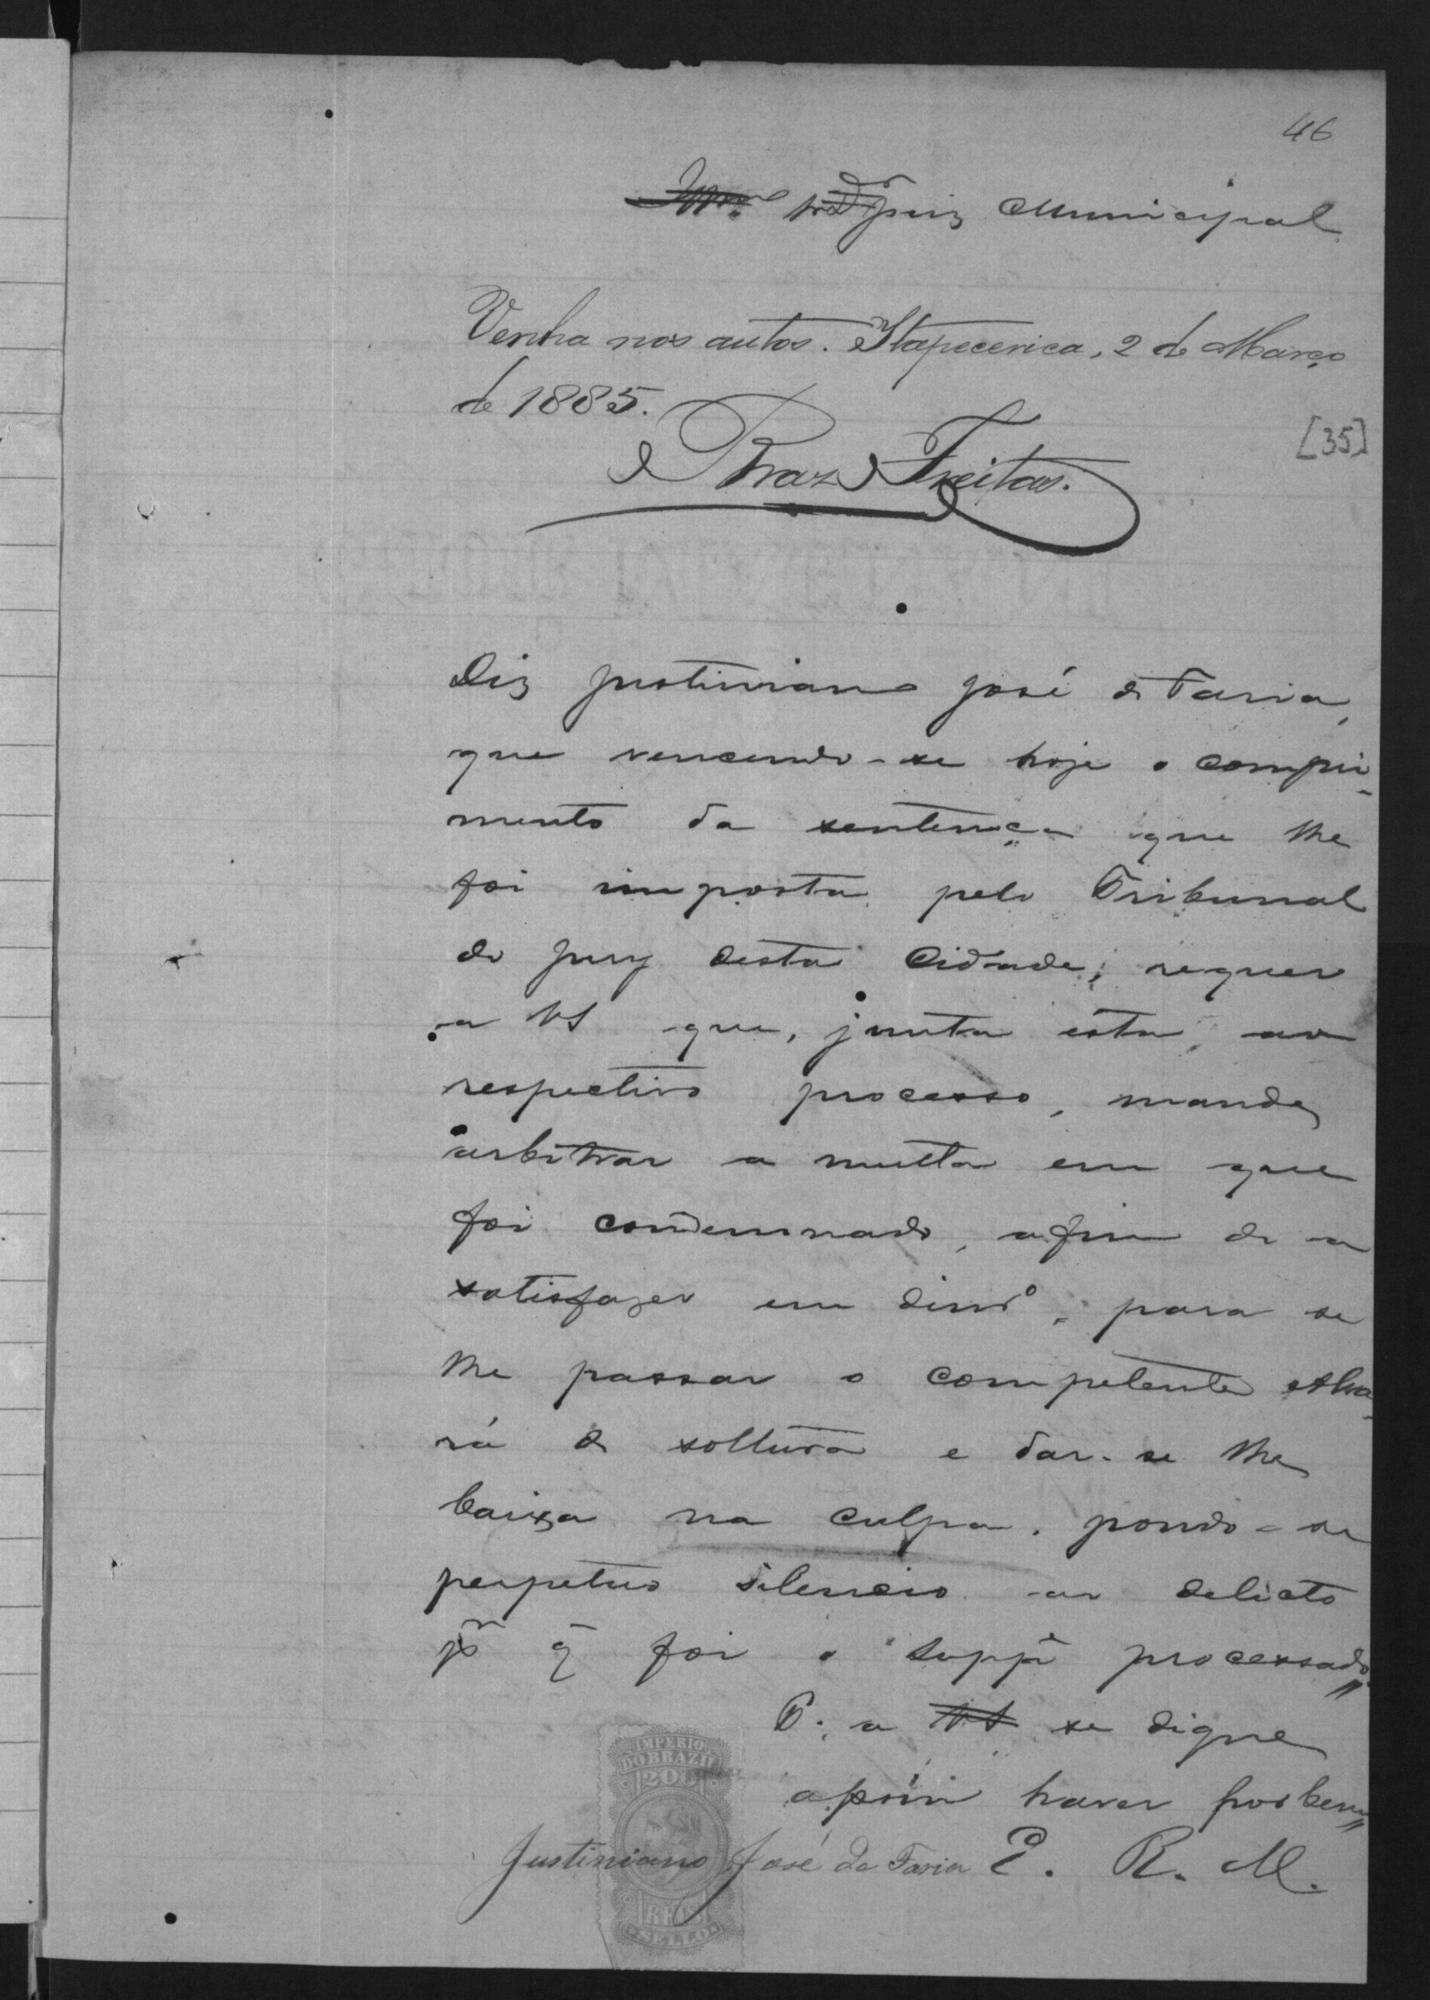 46
Illmo. Snr. Dr. Juiz Municipal
Venha nos autos. Itapecerica, 2 de Março
de 1885.
[35]
Braz Freitas.
Diz Justiniano José de Faria,
que vencendo-se hoje o compri-
mento da sentença que lhe
foi imposta pelo Tribunal
do Jury desta Cidade, requer
a VS que, junta esta ao
respectivo processo, mande
arbitrar a multa em que
foi condemnado, afim de a
satisfazer em dinro, para se
lhe passar o competente Alva-
rá de soltura e dar-se lhe
baixa na culpa, pondo-se
perpetuo silencio ao delicto
pr q̃ foi o suppe processado,,
P. a VS se digne
assim haver por bem,,
IMPERIO
DO BRAZIL
200
REIS
SELLO
Justiniano José de Faria E. R. M.